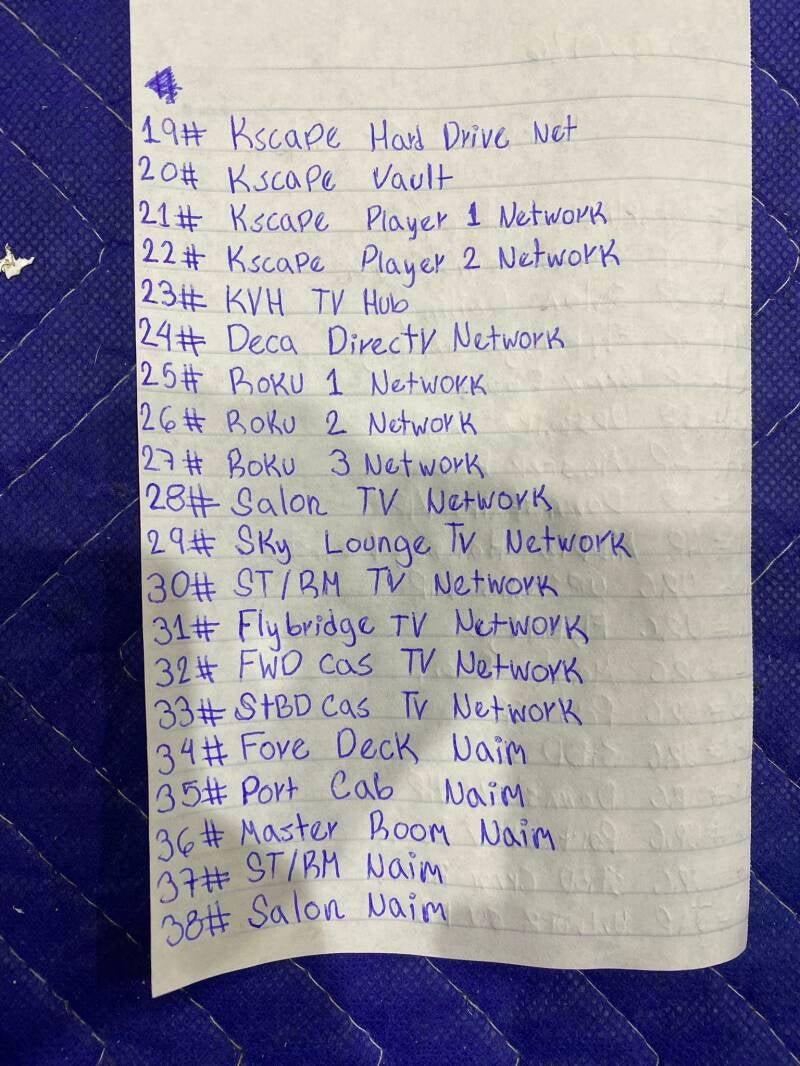 19# Kscape Hard Drive Net
20# Kscape Vault
21# Kscape Player 1 Network
22# Kscape Player 2 Network
23# KVH TV Hub
24# Deca Directv Network
25# Roku 1 Network
26# Roku 2 Network
27# Roku 3 Network
28# Salon TV Network
29# Sky Lounge TV Network
30# ST/RM TV Network
31# Flybridge TV Network
32# FWD Cas TV Network
33# StBD Cas TV Network
34# Fore Deck Naim
35# Port Cab Naim
36# Master Room Naim
37# ST/RM Naim
38# Salon Naim